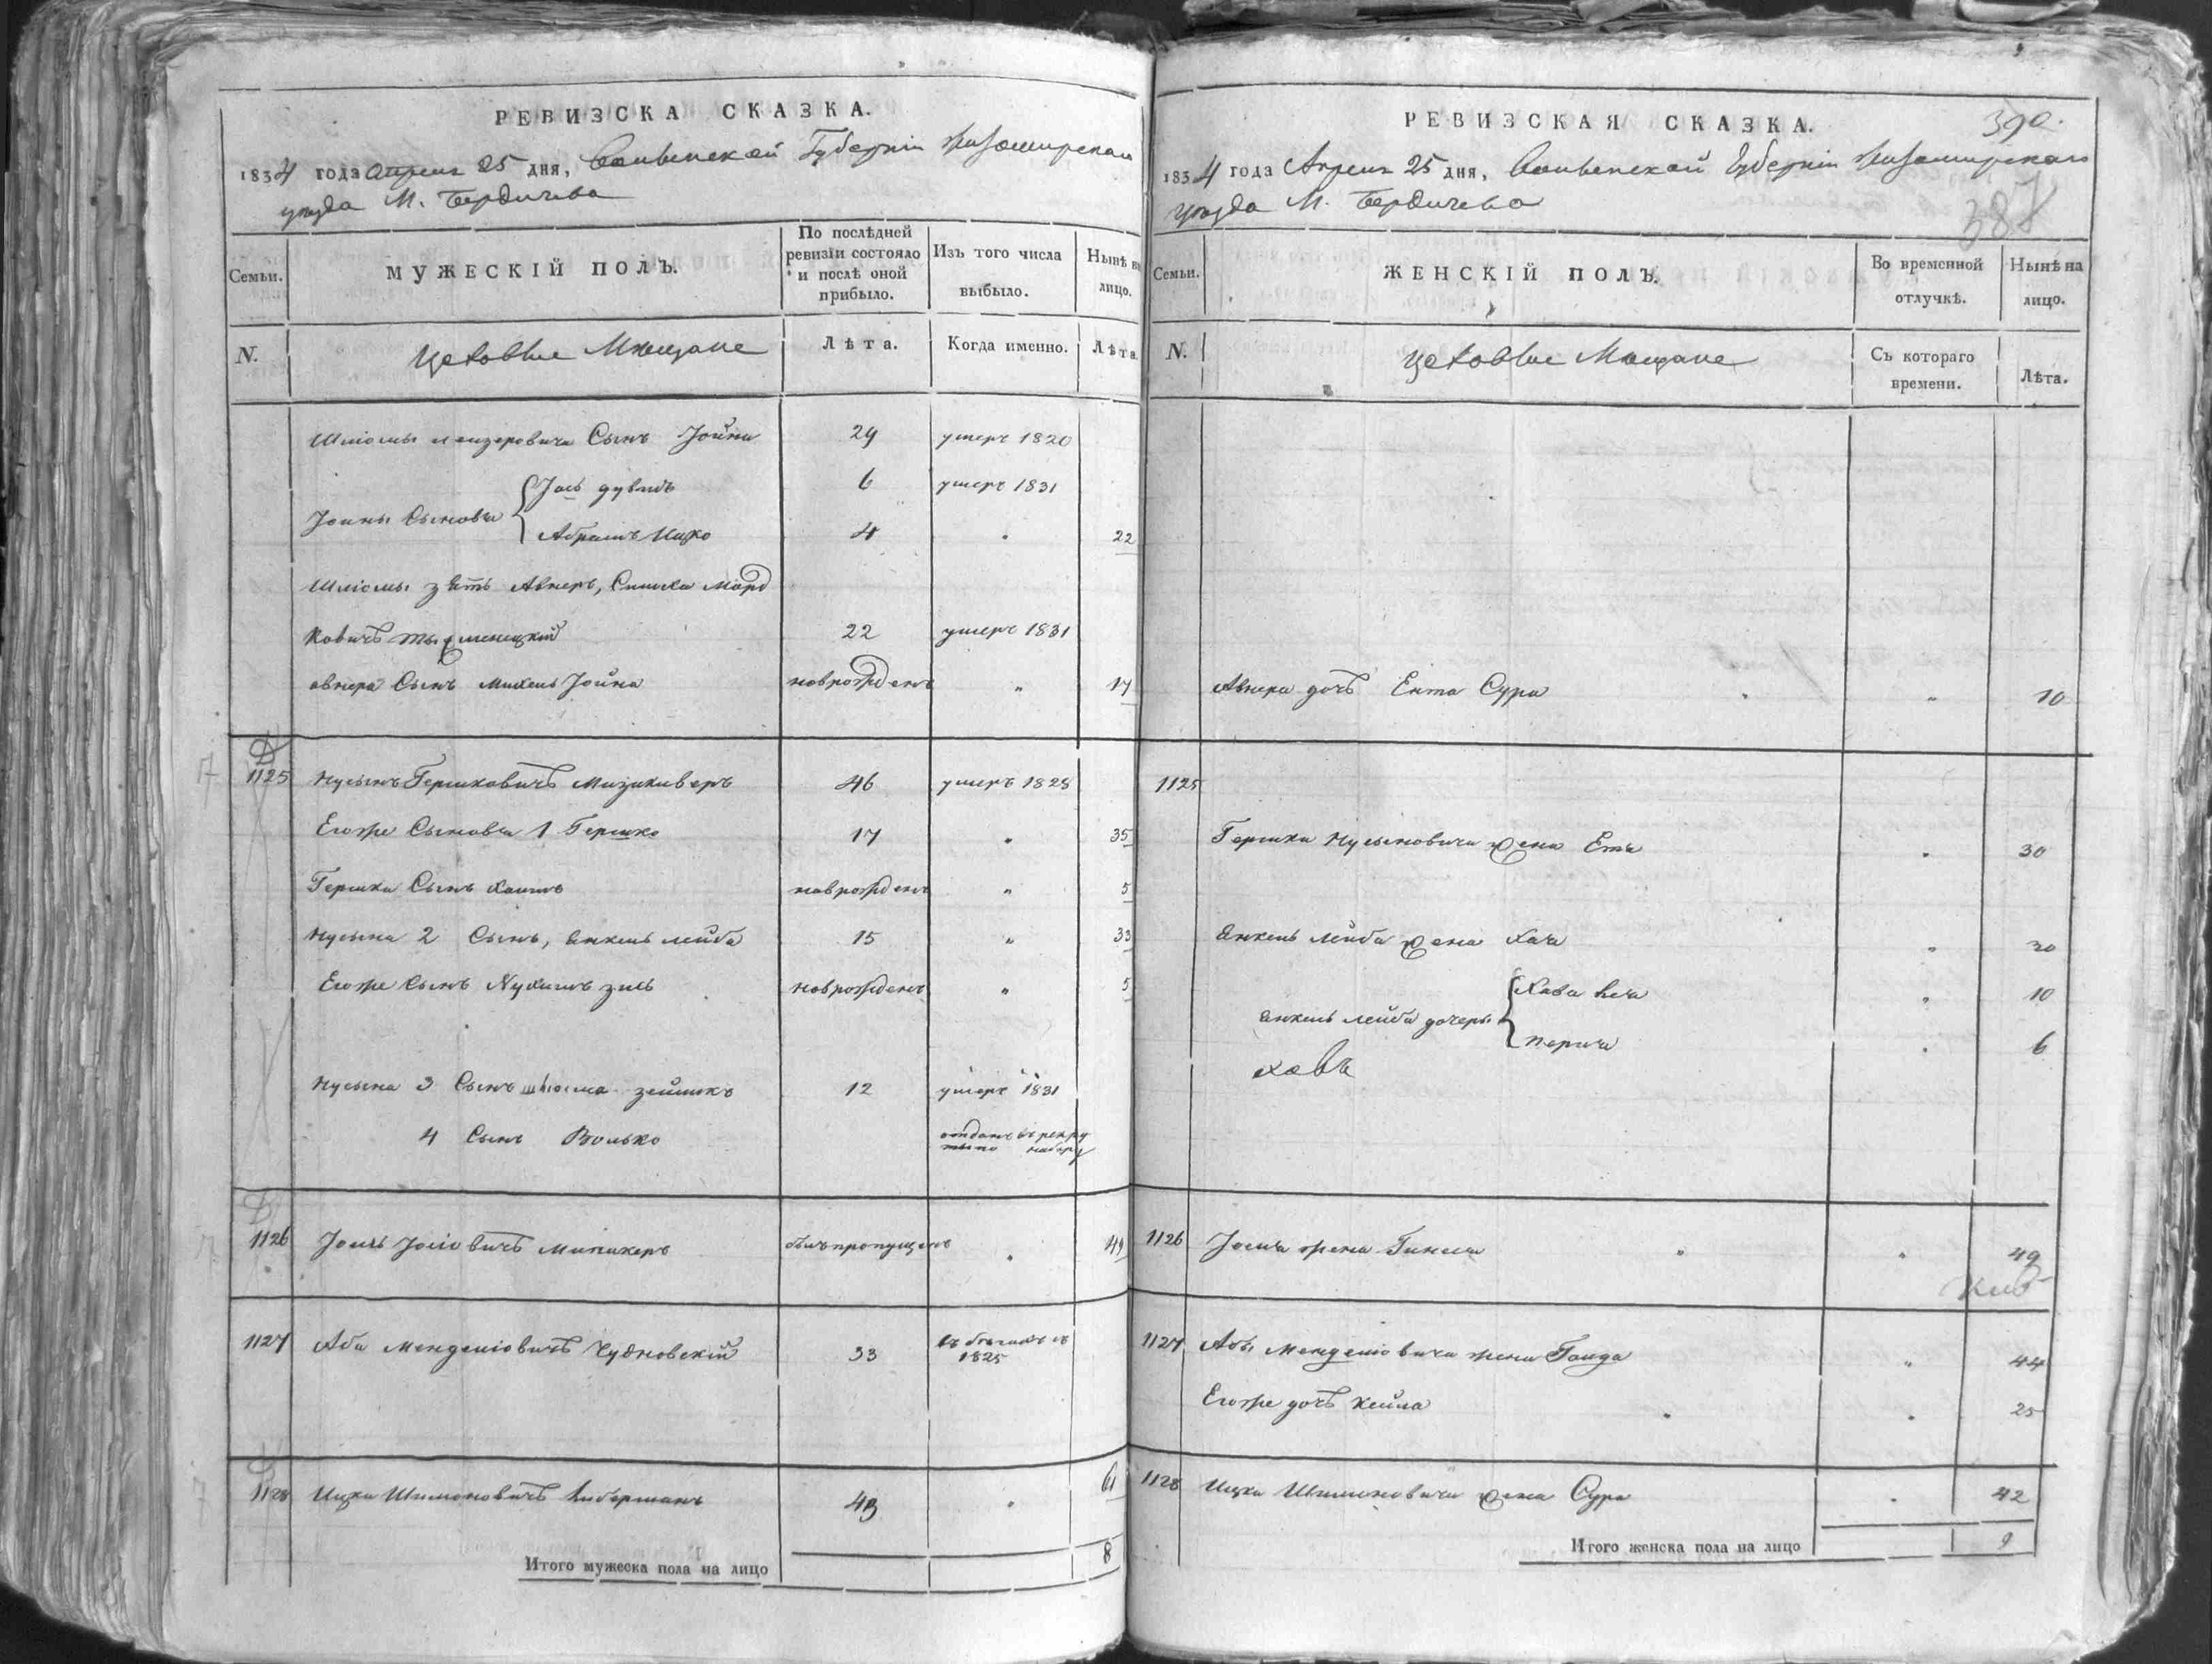 РЕВИЗСКА СКАЗКА.
1834 года Апреля 25 дня, Волынской Губерніи Житомирскаго
уезда М. Бердичева
Семьи.
МУЖЕСКІЙ ПОЛЪ.
По послѣдней
ревизіи состояло
и послѣ оной
прибыло.
Изъ того числа
выбыло.
Нынѣ на
лицо.
N.
Цеховые Мещане
Лѣта.
Когда именно.
Лѣта.
Шліомы Сынъ Іойна 29 умеръ 1820
Іось дувидъ 6 умеръ 1831
Іойны Сыновья
Абрамъ Ицко 4 " 22
Шліомы зять Авнеръ, Симха Морд
ковичъ 22 умеръ 1831
авнера Сынъ Михель Іойна новрожденъ " 17
1125 Нусынъ Гершковичъ 46 умеръ 1828
Егоже Сыновья 1 Гершко 17 " 35
Гершка Сынъ Хаимъ новрожденъ " 5
Нусына 2 Сынъ, Янкель лейба 15 " 33
Егоже Сынъ Нухимъ новрожденъ " 5
Нусына 3 Сынъ 12 умеръ 1831
4 Сынъ Волько отданъ в рекру
ты по набору
1126 былъ пропущенъ "
1127 Аба Менделіовичъ Чудновскій 33 въ бегахъ съ
1825
1128 Ицко Шимоновичъ Либерманъ 43 " 61
Итого мужеска пола на лицо 8
РЕВИЗСКАЯ СКАЗКА.
390.
1834 года Апреля 25 дня, Волынской Губерніи Житомирскаго
уезда М. Бердичева
387
Семьи.
ЖЕНСКІЙ ПОЛЪ.
Во временной
отлучкѣ.
Нынѣ на
лицо.
N.
Цеховые Мещане
Съ котораго
времени.
Лѣта.
Авнера дочь Ента Сура " 10
1125
Гершка Нусыновича жена Етя " 30
Янкель Лейба жена Хая " 30
Хава 10
Янкель Лейба дочеры
Перля 6
1126 жена " 49
1127 Абы Менделіовича жена Голда " 44
Егоже дочь Хейла " 25
1128 Ицка Шимоновича жена Сура " 42
Итого женска пола на лицо 9